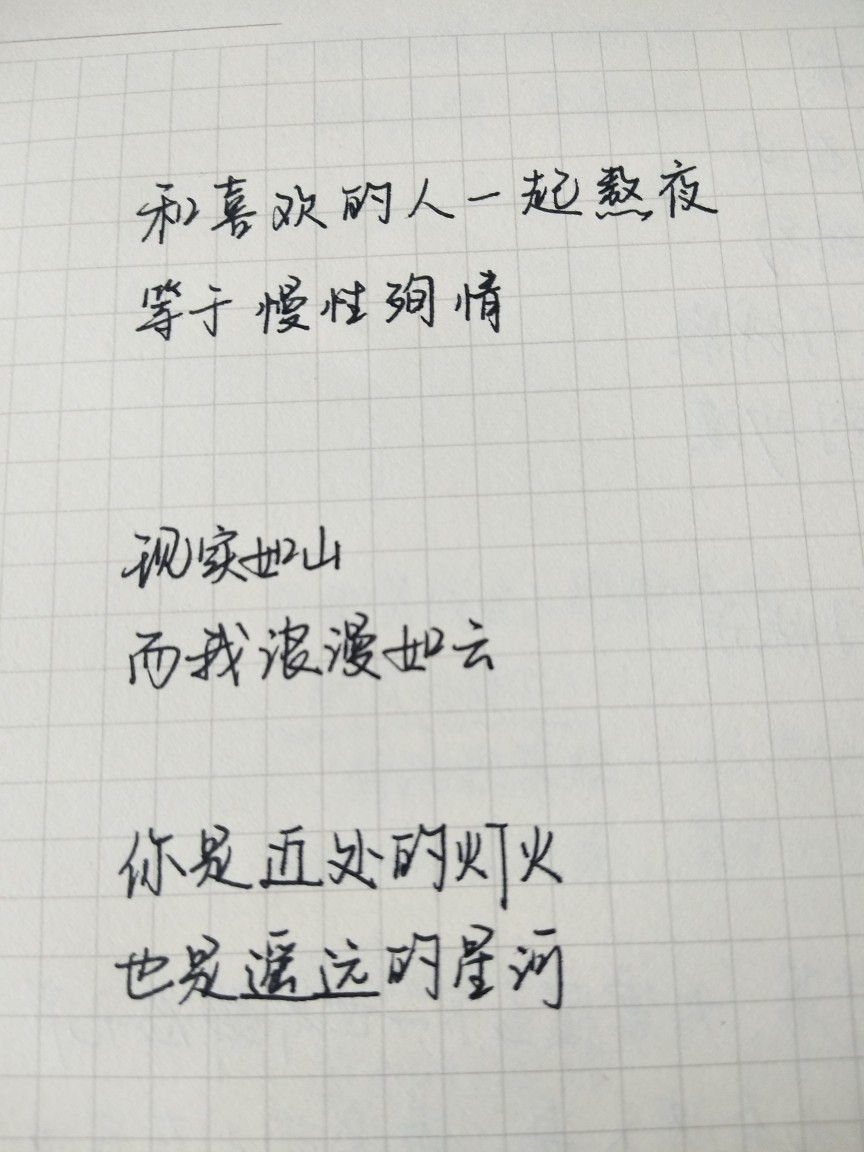 和喜欢的人一起熬夜
等于慢性殉情
现实如山
而我浪漫如云
你是近处的灯火
也是遥远的星河